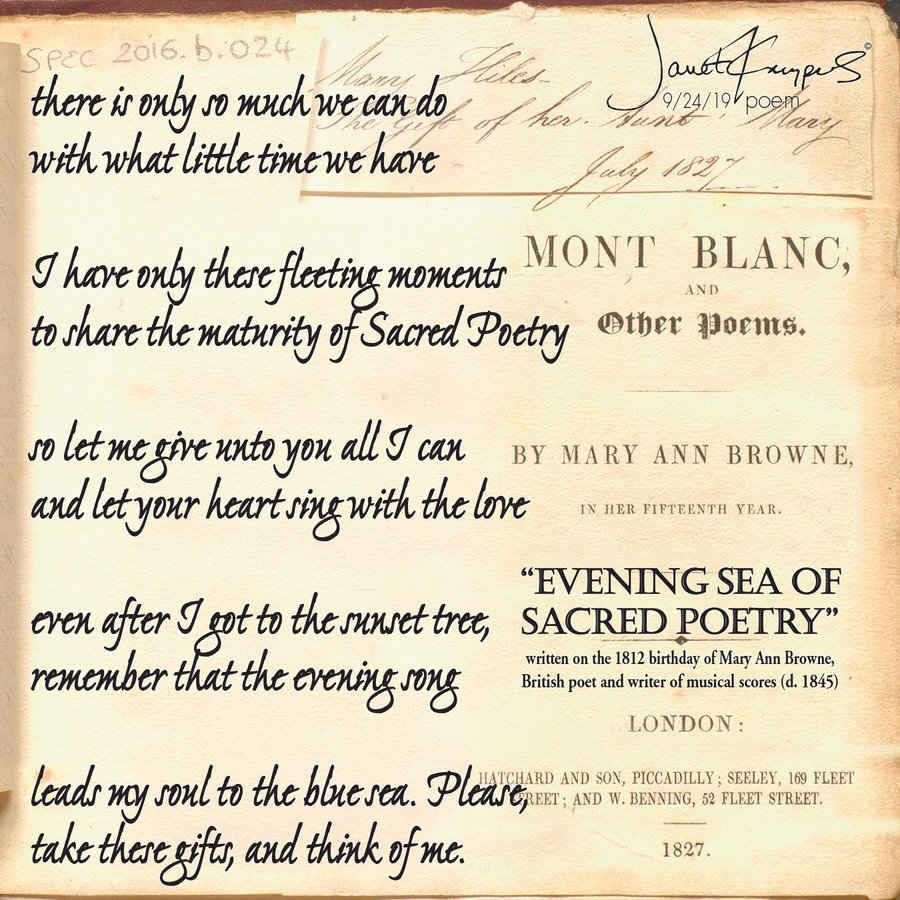 Spec 2016.b.024
Mary Hiles
The Gift of her Aunt Mary
July 1827
Janet Kuypers ©
9/24/19 poem
there is only so much we can do
with what little time we have
I have only these fleeting moments
to share the maturity of Sacred Poetry
so let me give unto you all I can
and let your heart sing with the love
even after I got to the sunset tree,
remember that the evening song
leads my soul to the blue sea. Please,
take these gifts, and think of me.
MONT BLANC,
AND
Other Poems.
BY MARY ANN BROWNE,
IN HER FIFTEENTH YEAR.
“EVENING SEA OF
SACRED POETRY”
written on the 1812 birthday of Mary Ann Browne,
British poet and writer of musical scores (d. 1845)
LONDON:
HATCHARD AND SON, PICCADILLY; SEELEY, 169 FLEET
STREET; AND W. BENNING, 52 FLEET STREET.
1827.